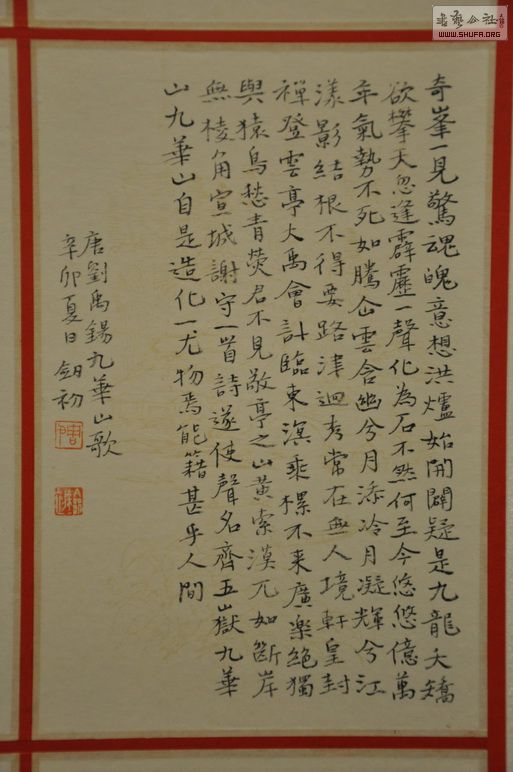 奇峯一見驚魂魄意想洪爐始開闢疑是九龍夭矯
欲攀天忽逢霹靂一聲化為石不然何至今悠悠億萬
年氣勢不死如騰仚雲含幽兮月添冷月凝輝兮江
漾影結根不得要路津迥秀常在無人境軒皇封
禪登雲亭大禹會計臨東溟乘樏不来廣樂絕獨
與猿鳥愁青熒君不見敬亭之山黄索漠兀如斷岸
無棱角宣城謝守一首詩遂使聲名齊五嶽九華
山九華山自是造化一尤物焉能籍甚乎人間
唐劉禹錫九華山歌
辛卯夏日釰初
書藝公社
WWW.SHUFA.ORG